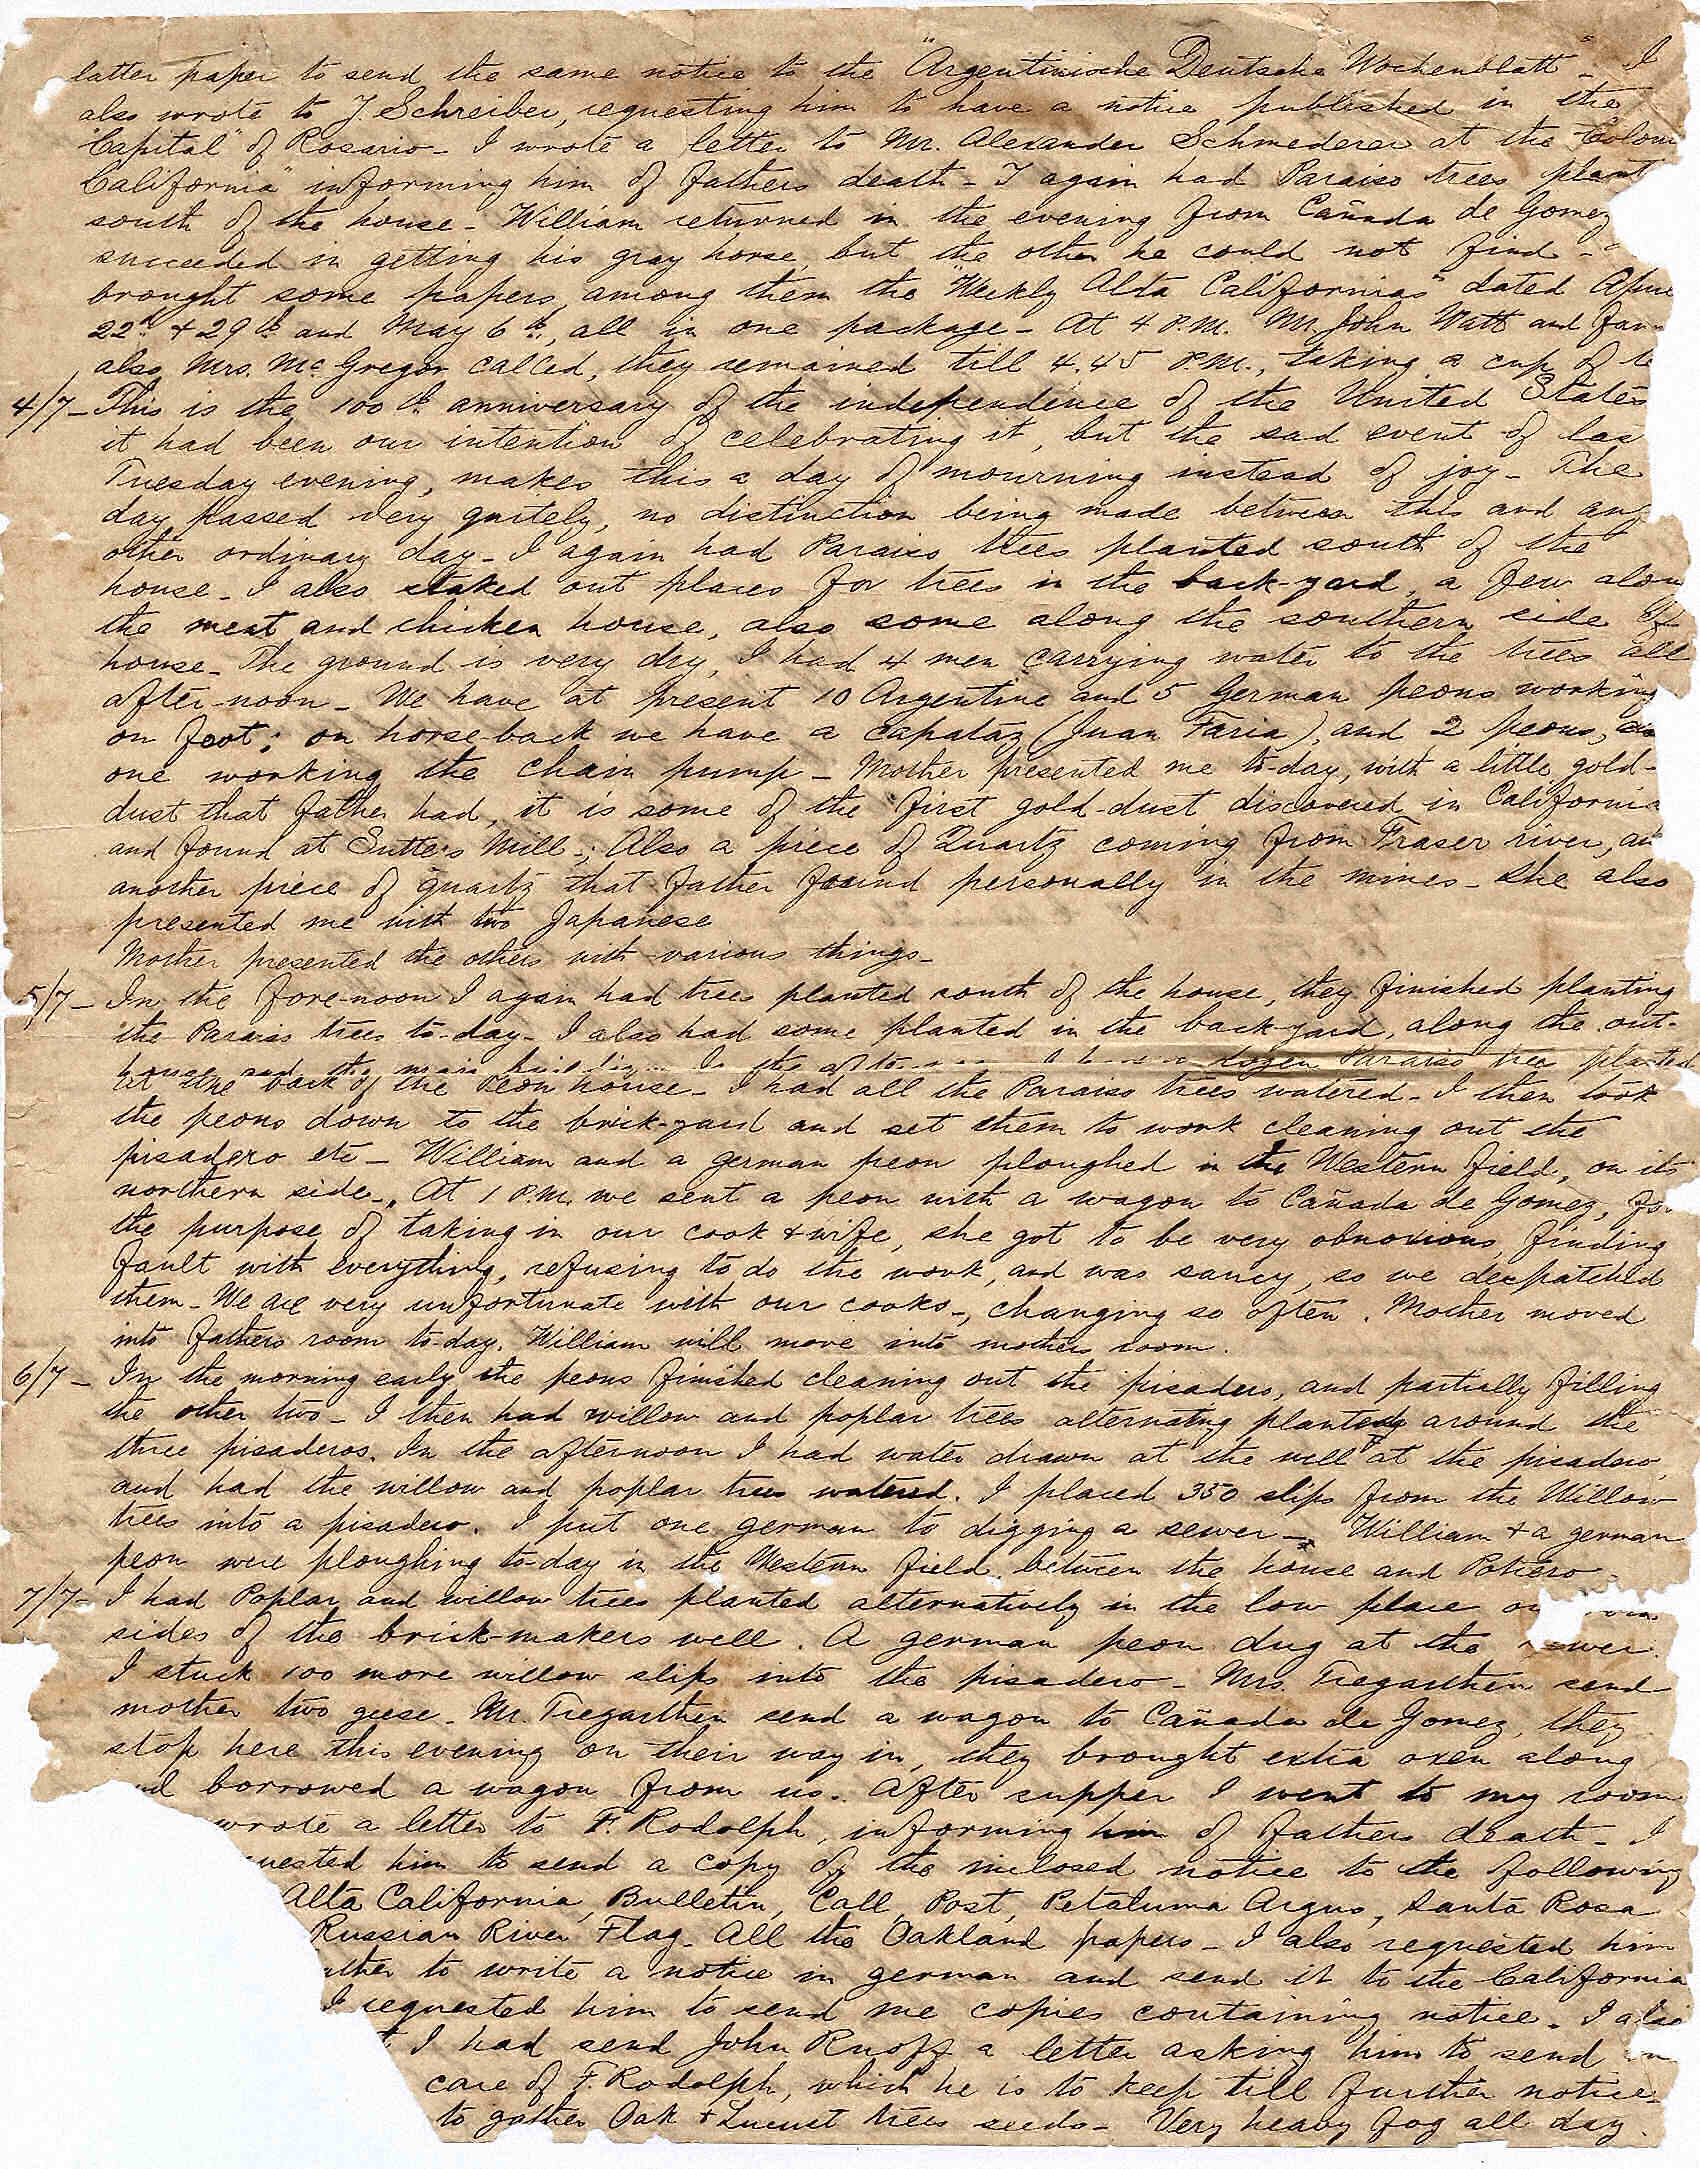 latter paper to send the same notice to the "Argentinische Deutsche Wochenblatt" - I
also wrote to J. Schreiber, requesting him to have a notice published in the
"Capital" of Rosario - I wrote a letter to Mr. Alexander Schmederer at the "Colon
California" informing him of fathers death - I again had Paraiso trees plant
south of the house - William returned in the evening from Cañada de Gomez
succeeded in getting his gray horse, but the other he could not find -
brought some papers, among them the "Weekly Alta Californias" dated Apri
22d & 29th and May 6th, all in one package - At 4 P.M. Mr. John Watt and fam
also, Mrs. McGregor called, they remained till 4.45 P.M., taking a cup of t
4/7 - This is the 100th anniversary of the independence of the United States
it had been our intention of celebrating it, but the sad event of las
Tuesday evening, makes this a day of mourning instead of joy - The
day passed very quitely, no distinction being made between this and any
other ordinary day - I again had Paraiso trees planted south of the
house - I also staked out places for trees in the back-yard, a few alon
the meat and chicken house, also some along the southern side of
house - The ground is very dry, I had 4 men carrying water to the trees all
after-noon - We have at present 10 Argentine and 5 German peons working
on foot; on horse-back we have a capataz (Juan Faria), and 2 peons,
one working the chain pump - Mother presented me to-day, with a little gold-
dust that father had, it is some of the first gold-dust discovered in California
and found at Sutters Mill -; Also a piece of Quartz coming from Fraser river, an
another piece of quartz that father found personally in the mines - She also
presented me with two Japanese
Mother presented the others with various things -
5/7 - In the fore-noon I again had trees planted south of the house, they finished planting
the Paraiso trees to-day - I also had some planted in the back-yard, along the out-
house and the main building - In the dozen Paraiso tree planted
at the back of the Peon house - I had all the Paraiso trees watered - I then took
the peons down to the brick-yard and set them to work cleaning out the
pisadero etc - William and a german peon ploughed in the Western field, on its
northern side - At 1 P.M. we sent a peon with a wagon to Cañada de Gomez, for
the purpose of taking in our cook & wife, she got to be very obnoxious, finding
fault with everything, refusing to do the work, and was saucy, so we despatched
them - We are very unfortunate with our cooks -, changing so often. Mother moved
into fathers room to-day. William will move into mothers room.
6/7 - In the morning early the peons finished cleaning out the pisadero, and partially filling
the other two - I then had willow and poplar trees alternating planted around the
three pisaderos. In the afternoon I had water drawn at the well at the pisadero,
and had the willow and poplar trees watered. I placed 350 slips from the Willow
trees into a pisadero. I put one german to digging a sewer - William & a german
peon were ploughing to-day in the Western field, between the house and Potrero
7/7 - I had Poplar and willow trees planted alternatively in the low place on
sides of the brick-makers well. A german peon dug at the sewer.
I stuck 100 more willow slips into the pisadero - Mrs. Tregarthen send
mother two geese - Mr. Tregarthen send a wagon to Cañada de Gomez, they
stop here this evening on their way in, they brought extra oxen along
and borrowed a wagon from us. After supper I went to my room
wrote a letter to F. Rodolph, informing him of fathers death - I
quested him to send a copy of the inclosed notice to the following
Alta California, Bulletin, Call, Post, Petaluma Argus, Santa Rosa
Russian River Flag - All the Oakland papers - I also requested him
ther to write a notice in german and send it to the California
I requested him to send me copies containing notice. I also
t I had send John Knoff a letter asking him to send
care of F. Rodolph, which he is to keep till further notice -
to gather Oak & Lucust trees seeds - Very heavy fog all day.